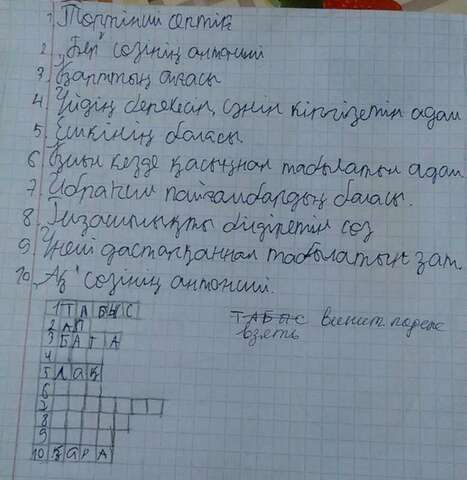 1 Төртінші септік
2 „Бер" сөзінің антонимі
3 Қарттың ағасы
4 Үйдің берекесін, сәнін кіргізетін адам
5. Ешкінің баласы.
6 Қиын кезде қасыңнан табылатын адам
7. Ибрахим пайғамбардың баласы.
8. Ризашылықты білдіретін сөз
9 Үнемі дастарқаннан табылатын зат.
10. „Ақ" сөзінің антонимі.
1 Т А Б Ы С
2 А Л
3 Б А Т А
4
5 Л А Қ
6
7
8
9
10 Қ А Р А
ТАБЫС винит. падеж
взять